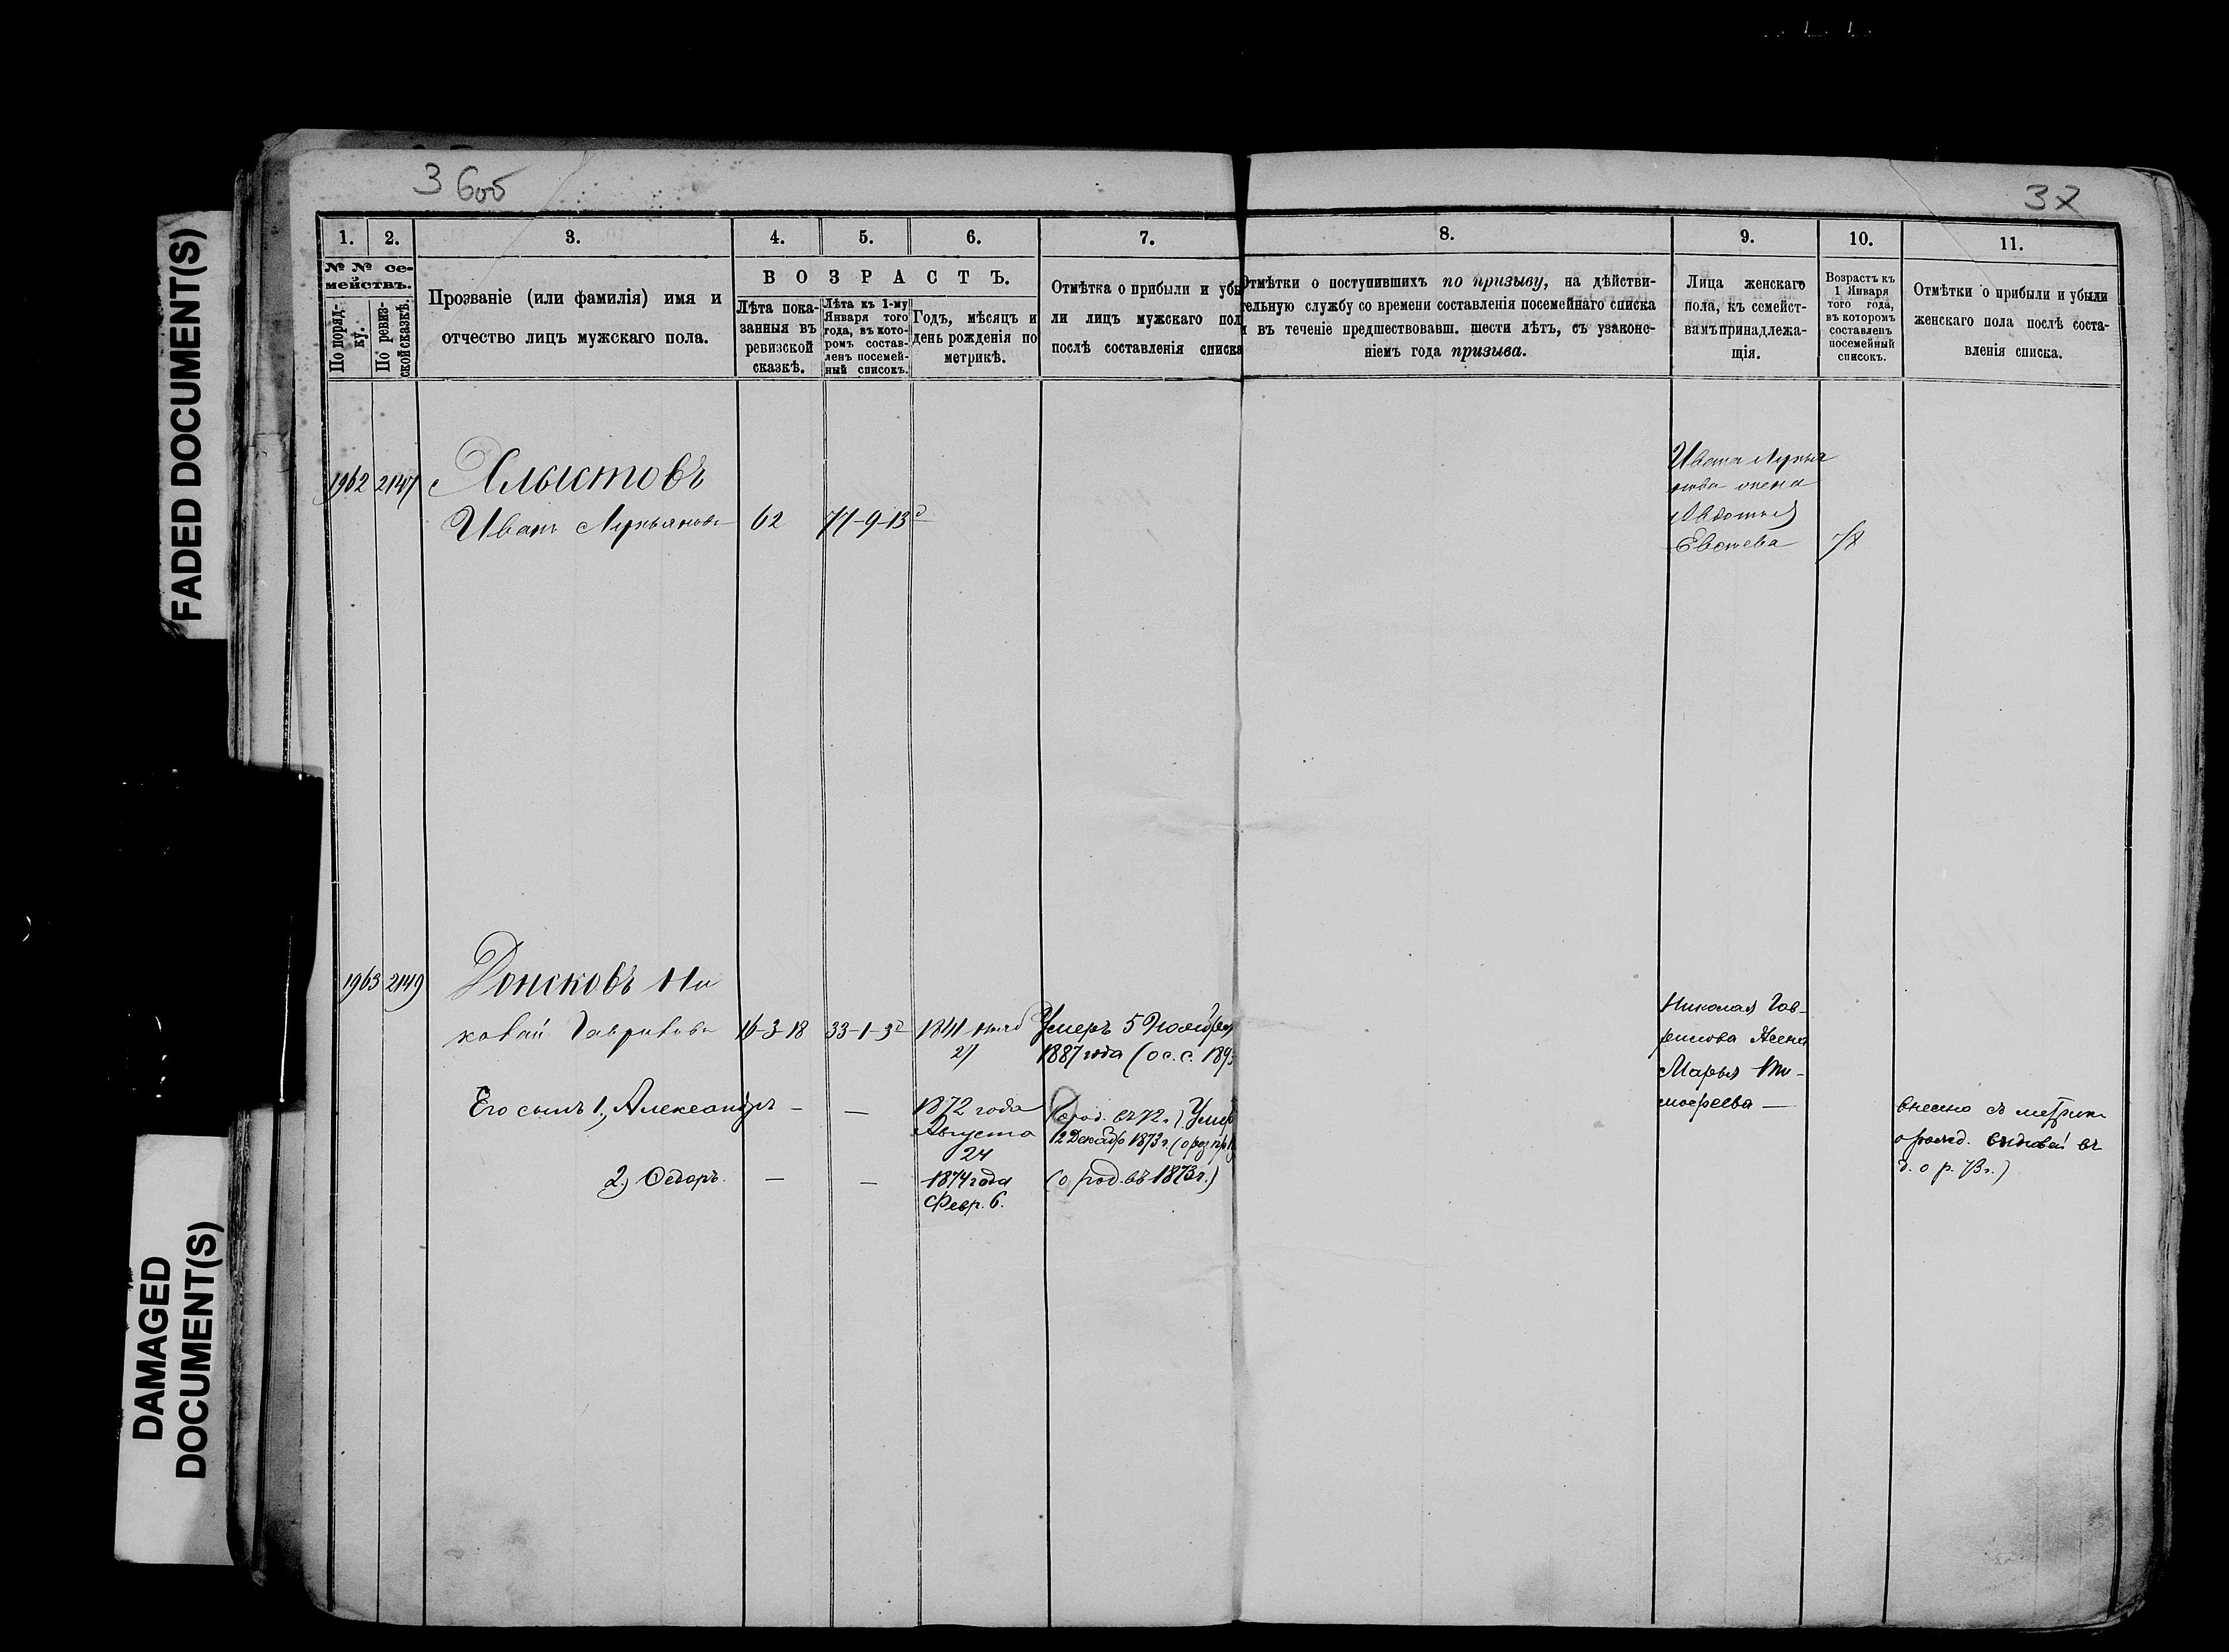 FADED DOCUMENT(S)
DAMAGED
DOCUMENT(S)
36об
37
1. 2. 3. 4. 5. 6. 7. 8. 9. 10. 11.
№ № се-
мействъ.
По поряд-
ку.
По ревиз-
ской сказкѣ.
Прозваніе (или фамилія) имя и
отчество лицъ мужскаго пола.
ВОЗРАСТЪ.
Лѣта пока-
занныя въ
ревизской
сказкѣ.
Лѣта къ 1-му
Января того
года, въ кото-
ромъ состав-
ленъ посемей-
ный списокъ.
Годъ, мѣсяцъ и
день рожденія по
метрикѣ.
Отмѣтка о прибыли и убы
ли лицъ мужскаго пол
послѣ составленія списка
Отмѣтки о поступившихъ по призыву, на дѣйстви-
тельную службу со времени составленія посемейнаго списка
и въ теченіе предшествовавш. шести лѣтъ, съ узаконе-
ніемъ года призыва.
Лица женскаго
пола, къ семейст-
вамъ принадлежа-
щія.
Возрастъ къ
1 Января
того года,
въ которомъ
составленъ
посемейный
списокъ.
Отмѣтки о прибыли и убыли
женскаго пола послѣ соста-
вленія списка.
1962 2147 Хлыстовъ
Иванъ Лукьяновъ 62 77-9-13
Ивана Лукья
нова жена
Авдотья
1963 2149 Донсковъ Ни
колай Гавриловъ 16-3-18 33-1-3 1841
27
Умеръ 5 Ноября
1887 года (о с. с. 189
Николая Гав-
рилова Жена
Марья Ти-
мофеева —
Его сынъ 1, Александръ — — 1872 года
Августа
24
(о род. въ 72 г.) Умер
12 Декабр 1873 г.
2, Федоръ — — 1874 года
Февр. 6.
(о род. въ 1873 г.)
внесено съ метрик
о рожд. въ
д. о р. 73 г.)